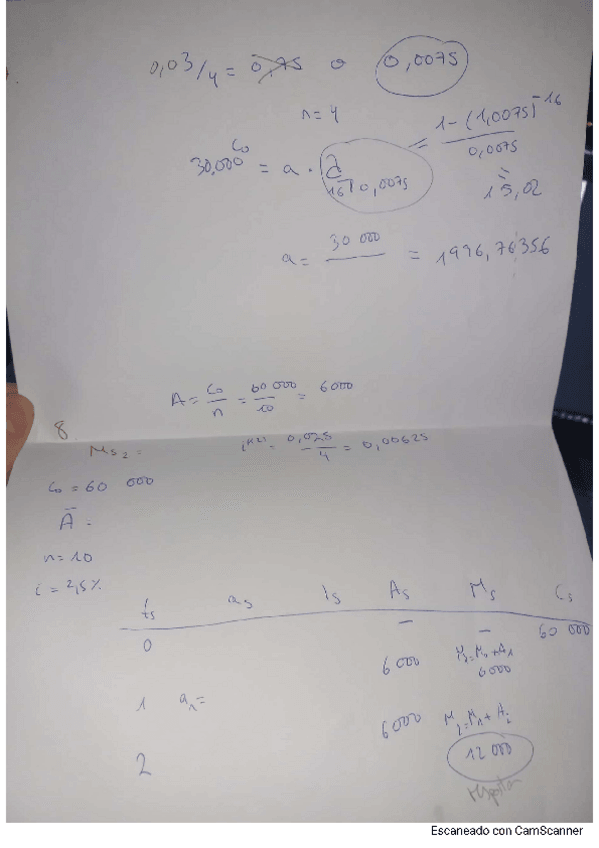 0,03/4 = 0,75 o 0,0075
n = 4
30,000 Co = a · a 16|0,0075 = 1-(1,0075)^-16 / 0,0075
= 15,02
a = 30 000 / = 1996,76356
A = Co/n = 60 000/10 = 6000
8
Ms2 =
= 0,025/4 = 0,00625
Co = 60 000
A =
n = 10
i = 2,5%
ts as Is As Ms Cs
0 - - 60 000
1 a1 = 6000 M1=M0+A1 6000
2 6000 M2=M1+A2 12 000
Escaneado con CamScanner